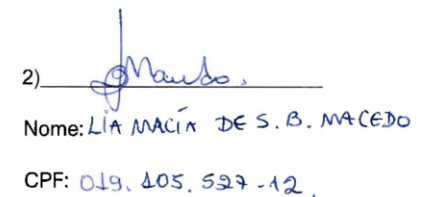 2)
Nome: LIA MACÍA DE S. B. MACEDO
CPF: 019.105.527-12.